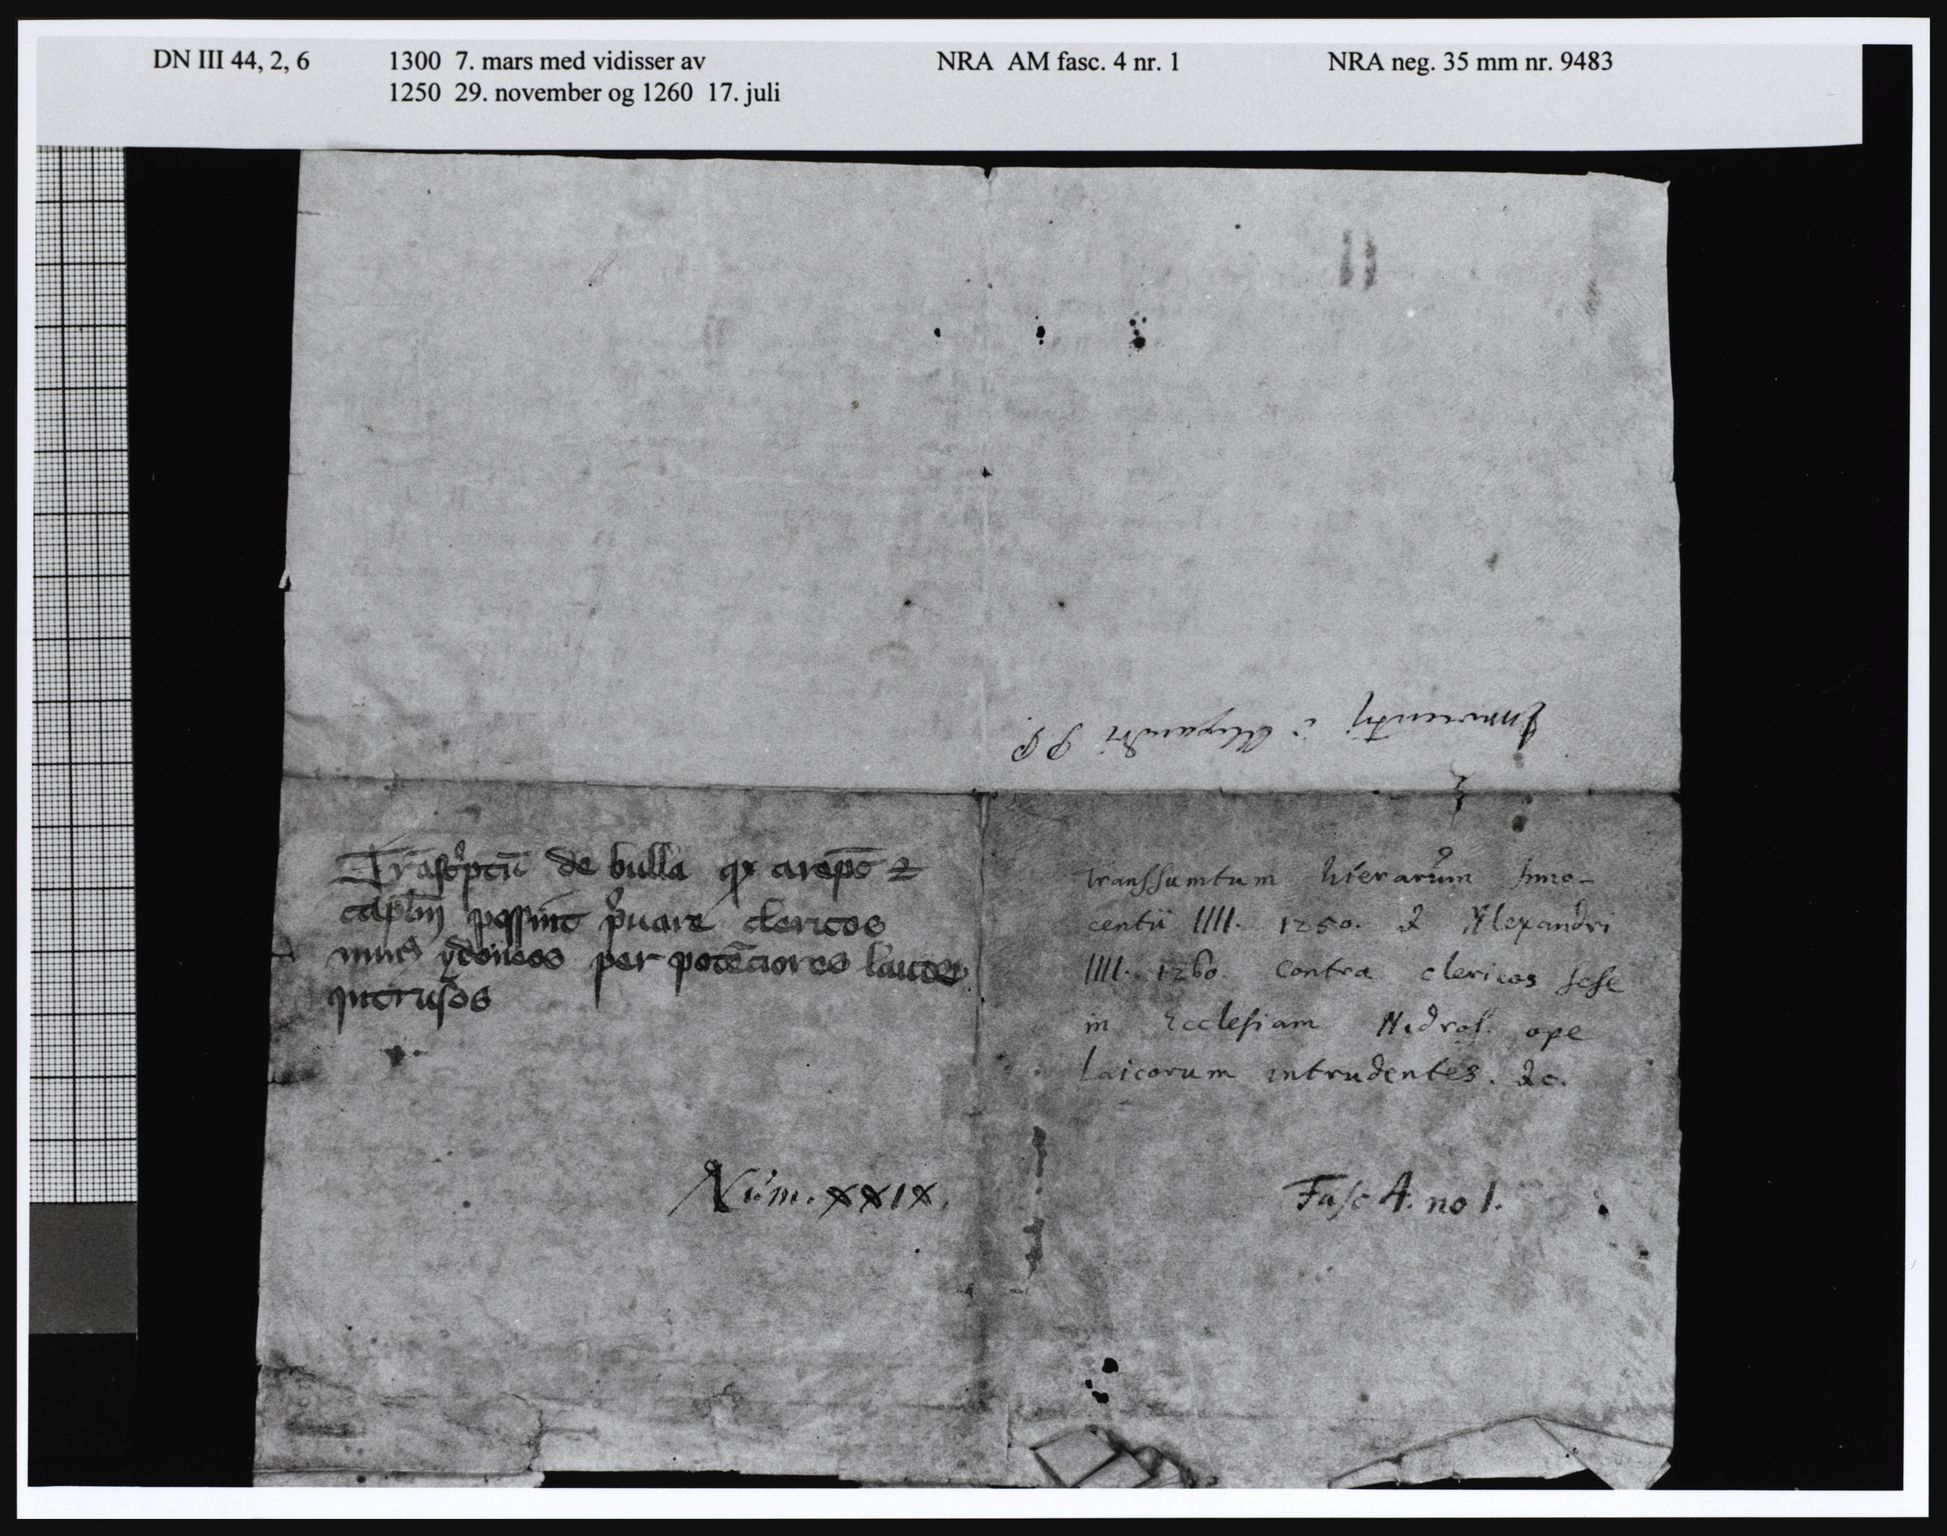 DN III 44, 2, 6 1300 7. mars med vidisser av NRA AM fasc. 4 nr. 1 NRA neg. 35 mm nr. 9483
1250 29. november og 1260 17. juli
Innocentij & Alexandri P.P.
Trāscͥptū de bulla qͥ arep̄c ⁊
capłm possint pͥuare clericos
minꝰ ydoneos per potēciores laicos
intrusos
Transsumtum hierarum Inno-
centii IIII. 1250. & Alexandri
IIII. 1260. contra clericos sese
in Ecclesiam Nidros. ope
Laicorum intrudentes. &c.
Núm. XXIX.
Fasc 4. no 1.